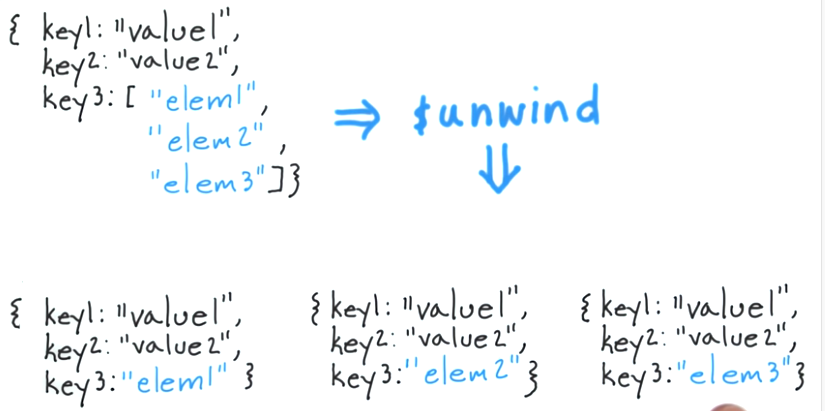 { key1: "value1",
key2: "value2",
key3: [ "elem1",
"elem2",
"elem3"]}
⇒ $unwind
⇓
{ key1: "value1",
key2: "value2",
key3:"elem1" }
} key1: "value1",
key2: "value2",
key3:"elem2"}
{ key1: "value1",
key2: "value2",
key3:"elem3"}